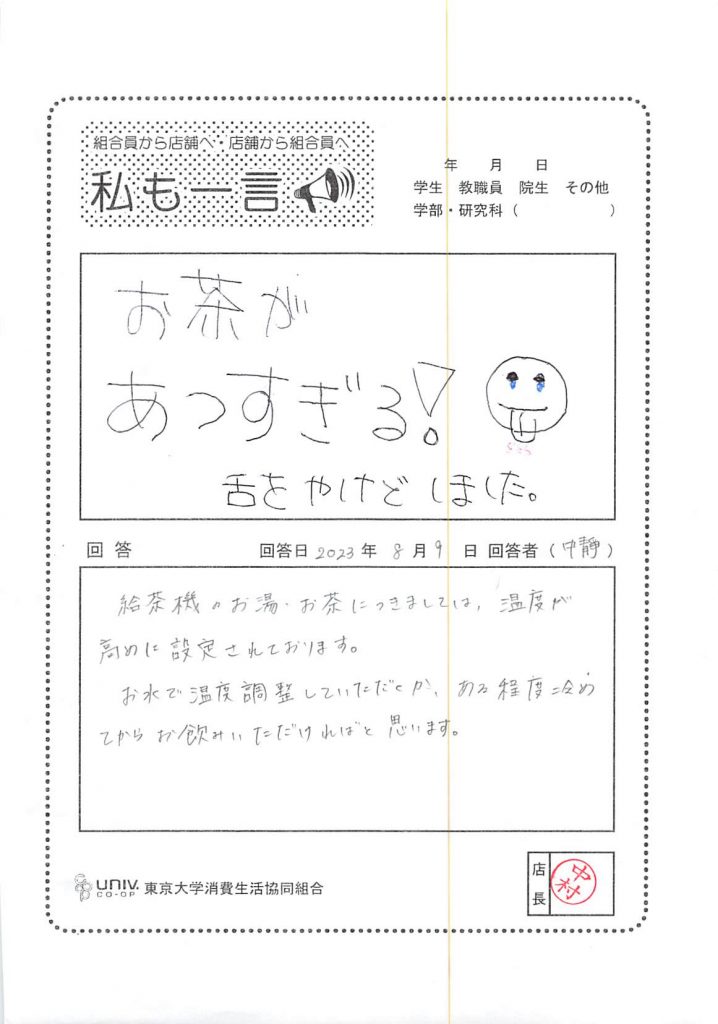 組合員から店舗へ・店舗から組合員へ
私も一言
年 月 日
学生 教職員 院生 その他
学部・研究科( )
お茶が
あつすぎる!
舌をやけどしました。
回答 回答日 2023年 8月 9日 回答者(中靜)
給茶機のお湯・お茶につきましては、温度が
高めに設定されております。
お水で温度調整していただくか、ある程度冷め
てからお飲みいただければと思います。
UNIV. CO-OP 東京大学消費生活協同組合
店長 中村